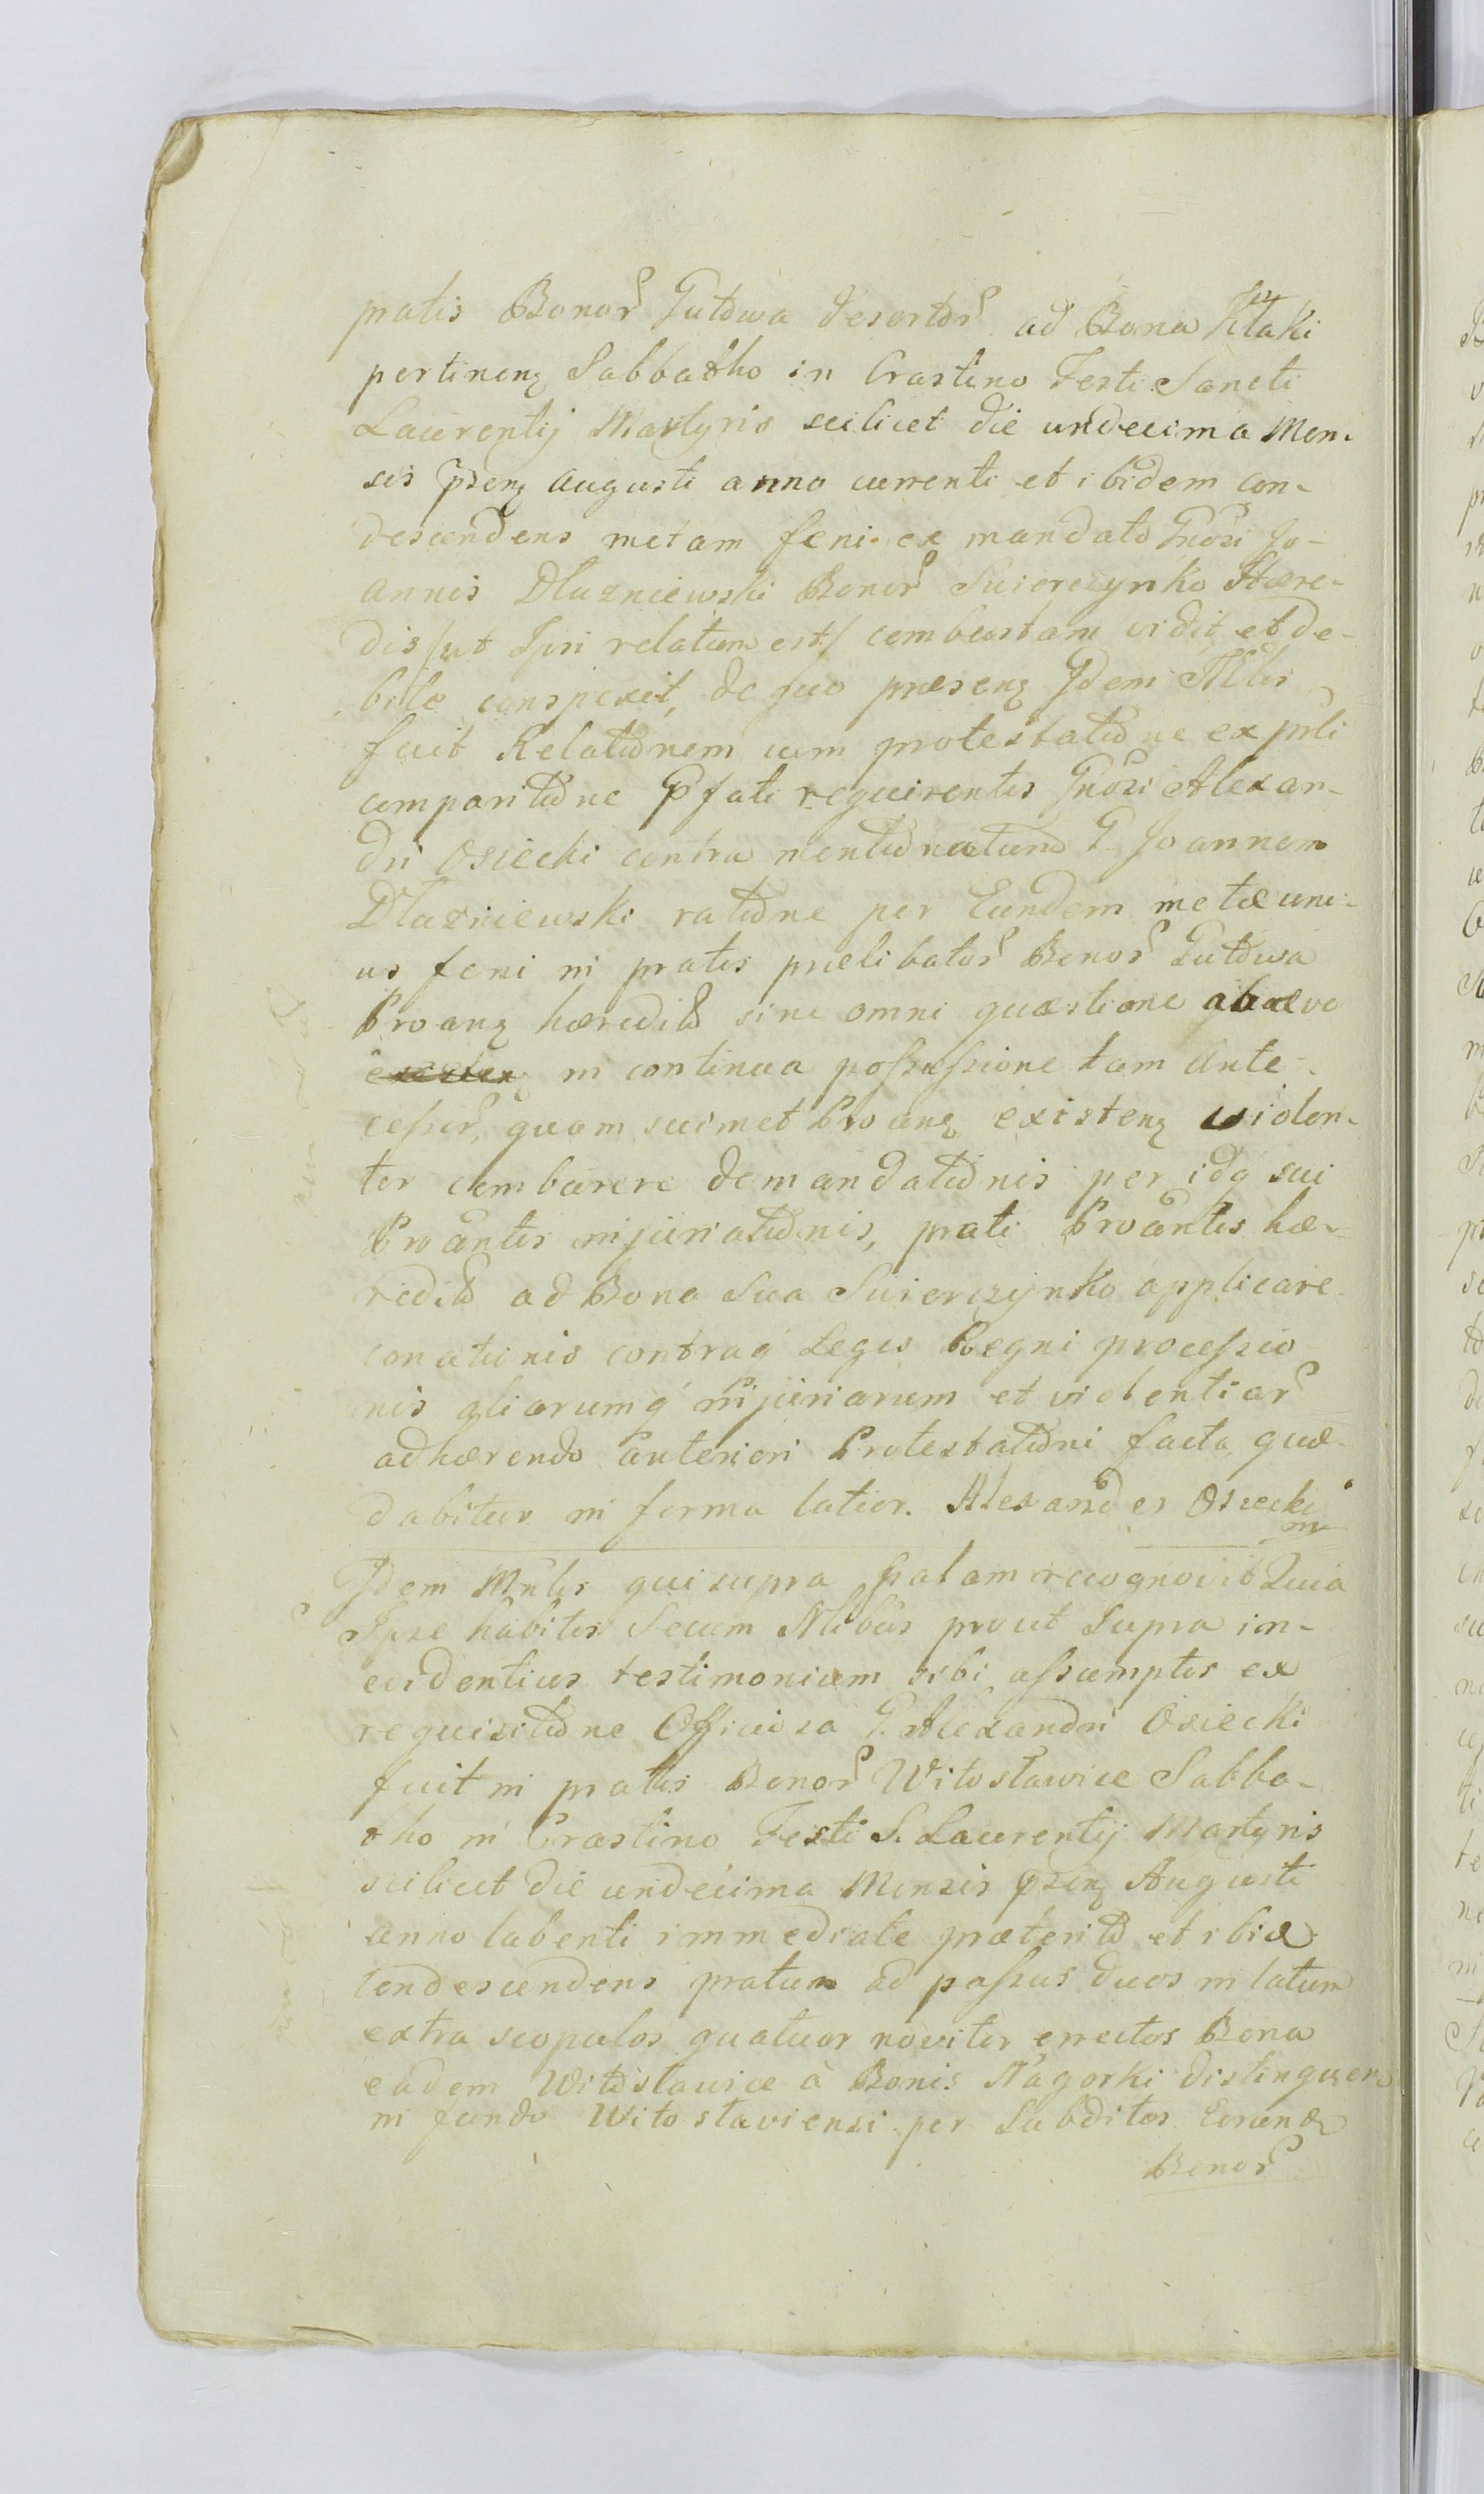 pratis Bonor Gutowa desertor ad Bona Kłaki
pertinen Sabbatho in Crastino Festi Sancti
Laurentij Martyris scilicet die undecima Men-
sis pñsen Augusti anno currenti et ibidem con-
descendens metam feni ex mandato Gnosi Jo-
annis Dłuzniewski Bonor Swierczynko Hære-
dis /ut Ipsi relatum est/ combustam vidit, et de-
bite conspexit, de quo præsen Idem Mlis
fecit Relationem cum protestatione ex pñli
comparitione Pfati requirentis Gnosi Alexan-
dri Osiecki contra mentionatum G. Joannem
Dłuzniewski ratione per Eundem metæ uni-
us feni in pratis prælibator Bonor Gutowa
Proan hæredit sine omni quæstione ab ævo
in continua possessione tam Ante-
cessor, quam suimet Proan existen violen-
ter comburere demandationis per idq sui
Proantis injuriationis, prati Proantis hæ-
redit ad Bona Sua Swierczynko applicare
conationis contraq Leges Regni processio-
nis aliarumq injuriarum et violentiar
adhærendo anteriori Protestationi factæ, quæ
dabitur in forma latior. Alexander Osiecki
mp
Idem Mnlis qui supra palam recognovit Quia
Ipse habitis Secum Nlibus prout Supra in-
evidentius testimonium sibi assumptis ex
requisitione Officiosa G. Alexandri Osiecki
fuit in pratis Bonor Witosławice Sabba-
tho in Crastino Festi S. Laurentij Martyris
scilicet die undecima Mensis pñsen Augusti
anno labenti immediate præterito et ibid
condescendens pratum ad passus duos in latum
extra scopulos quatuor noviter erectos Bona
eadem Witosławice à Bonis Nagorki distinguen
in fundo Witosławiensi per Subditos Eorund
Bonor